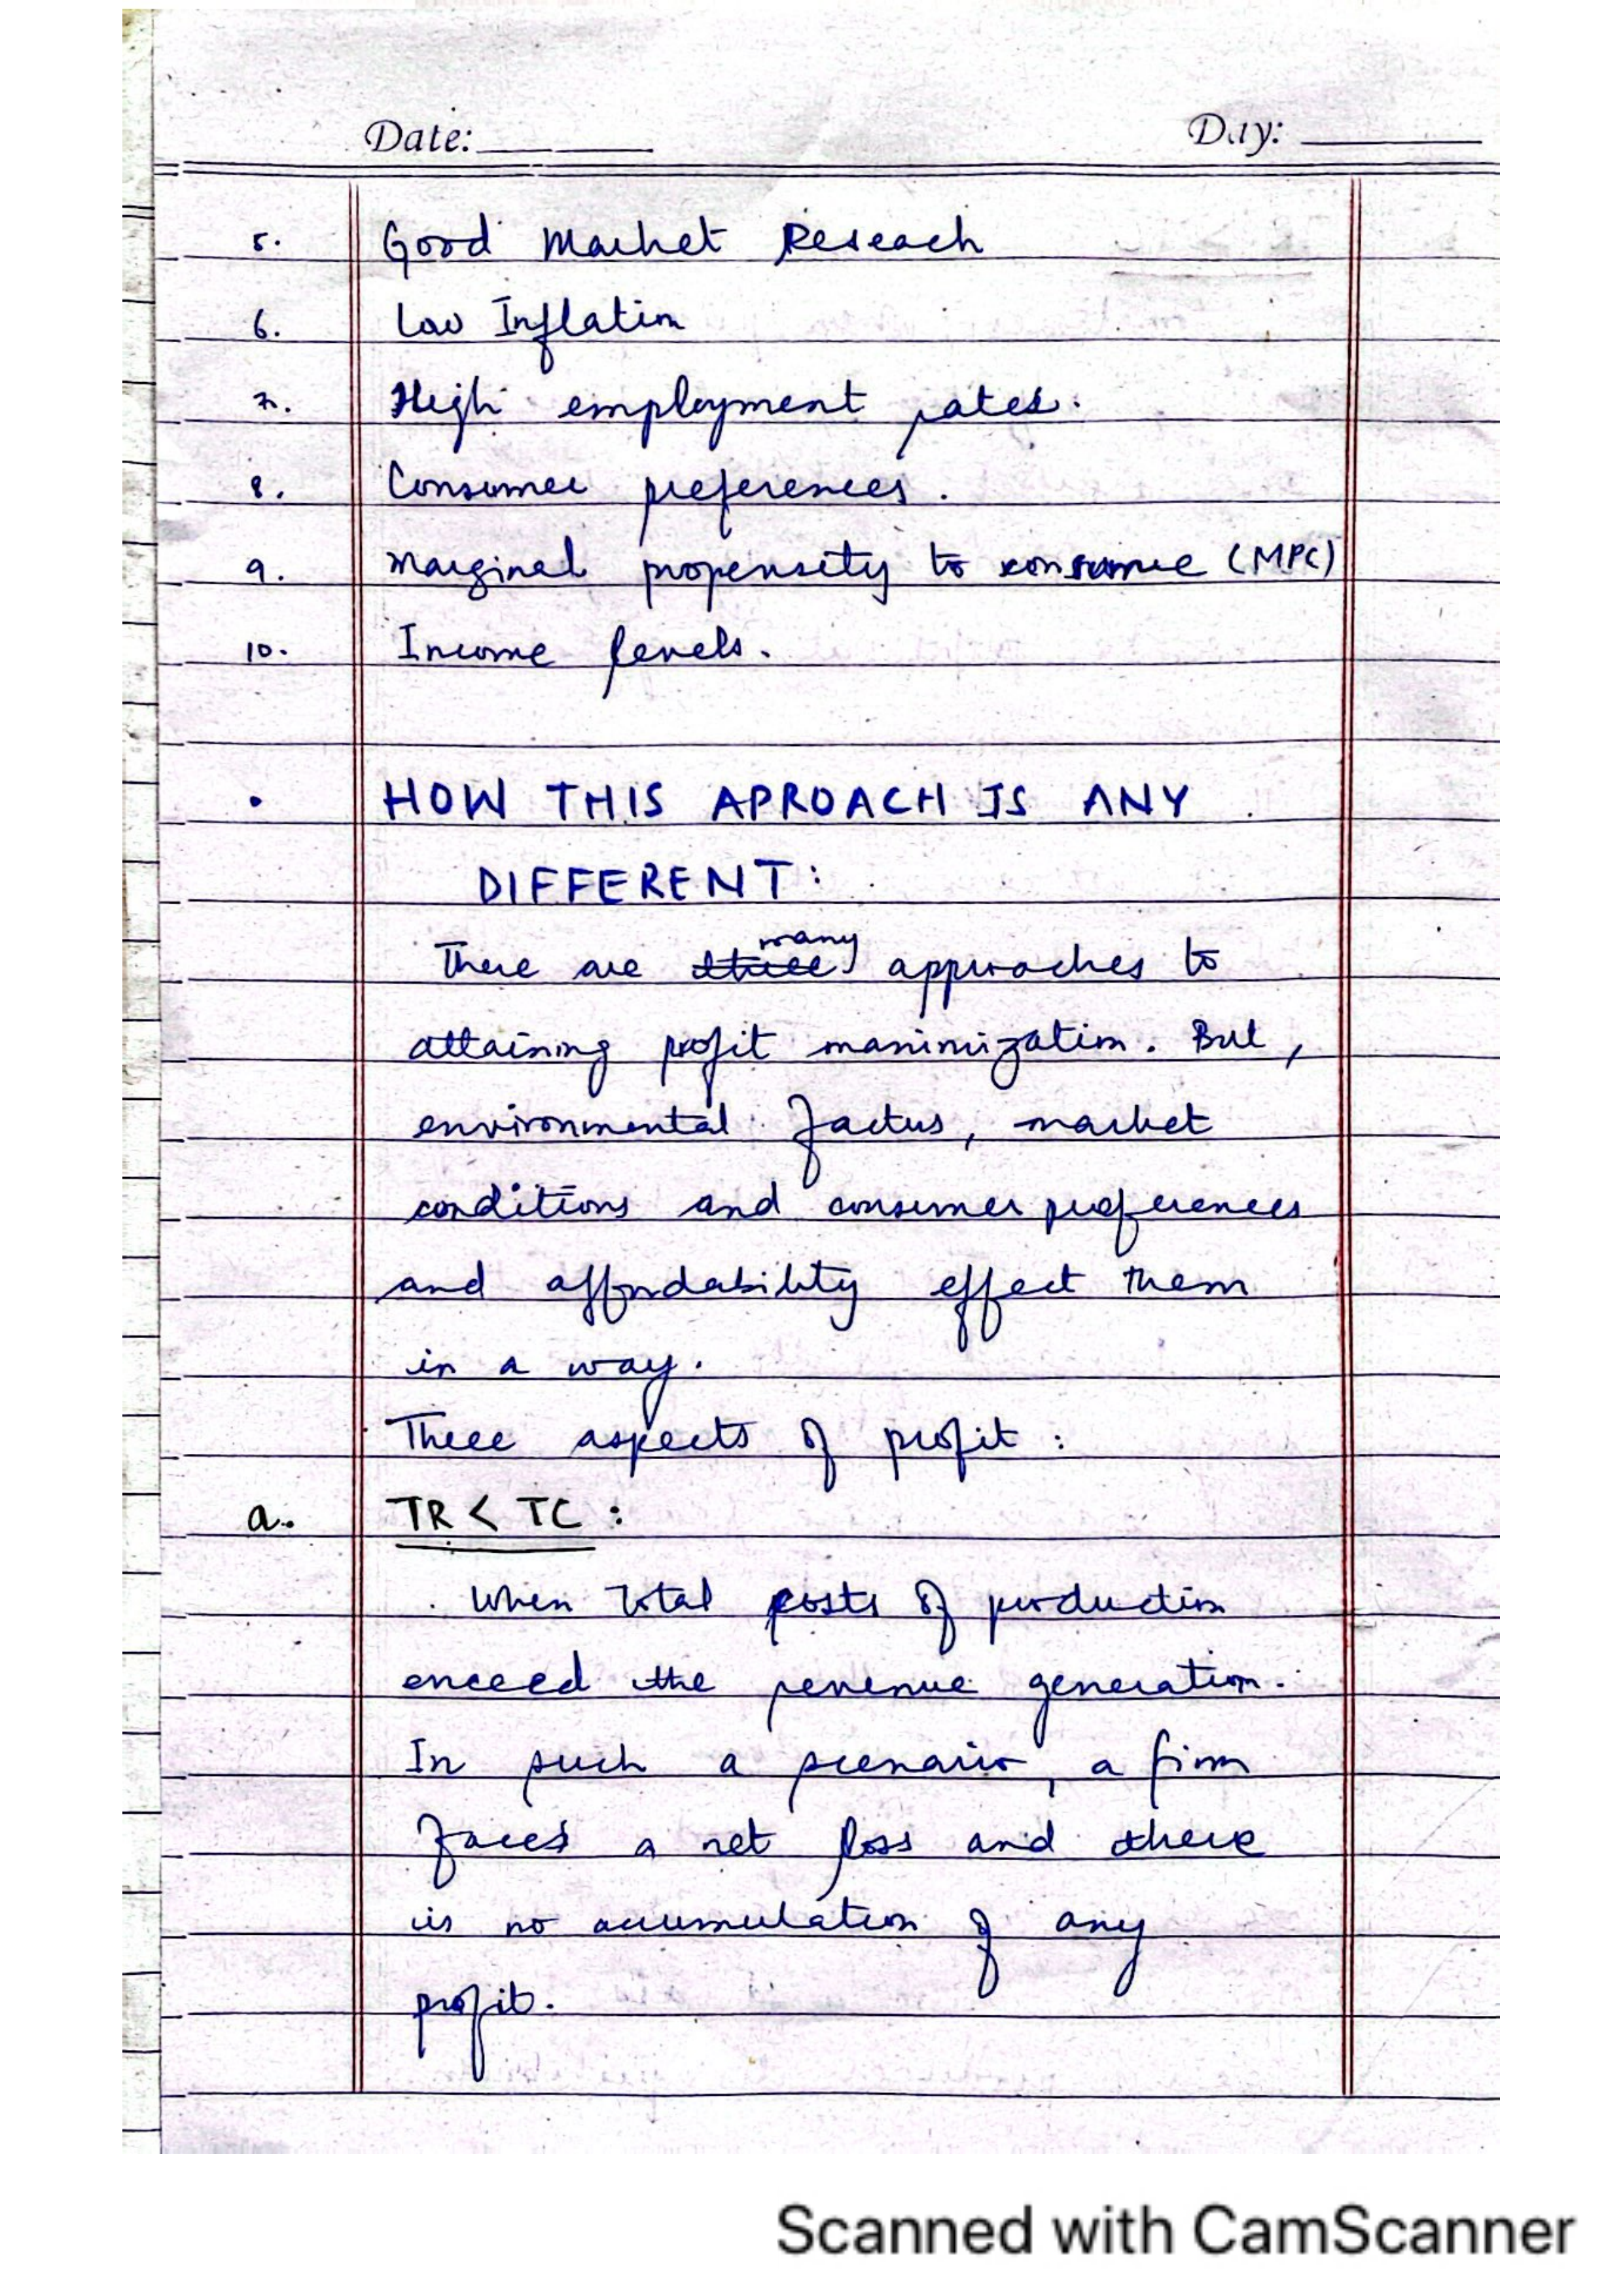 Date: Day:
5. Good Market Reseach
6. Low Inflation
7. High employment rates.
8. Consumer preferences.
9. Marginal propensity to consume (MPC)
10. Income levels.
• HOW THIS APROACH IS ANY
DIFFERENT:
many
There are three approaches to
attaining profit maximization. But,
environmental factors, market
conditions and consumer preferences
and affordability effect them
in a way.
Three aspects of profit:
a. TR < TC:
When total costs of production
exceed the revenue generation.
In such a scenario, a firm
faces a net loss and there
is no accumulation of any
profit.
Scanned with CamScanner